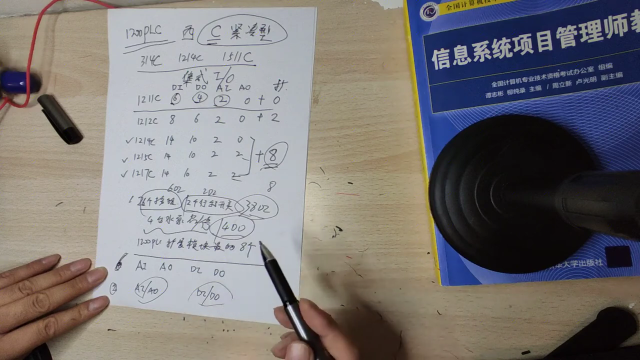 1200PLC 西 C 紧凑型
314C 1214C 1511C
集成 I/O
DI DO AI AO 扩
1211C 6 4 2 0 + 0
1212C 8 6 2 0 + 2
✓1214C 14 10 2 0
✓1215C 14 10 2 2 + 8
✓1217C 14 10 2 2
8
6DI 2DI
按钮 行程开关 38DI
4台水泵 14DO
1200PLC 扩展模块最多 8个
① AI AO DI DO
② AI/AO DI/DO
全国计算机
信息系统项目管理师教
全国计算机专业技术资格考试办公室 组编
谭志彬 柳纯录 主编 / 周立新 卢光明 副主编
大学出版社